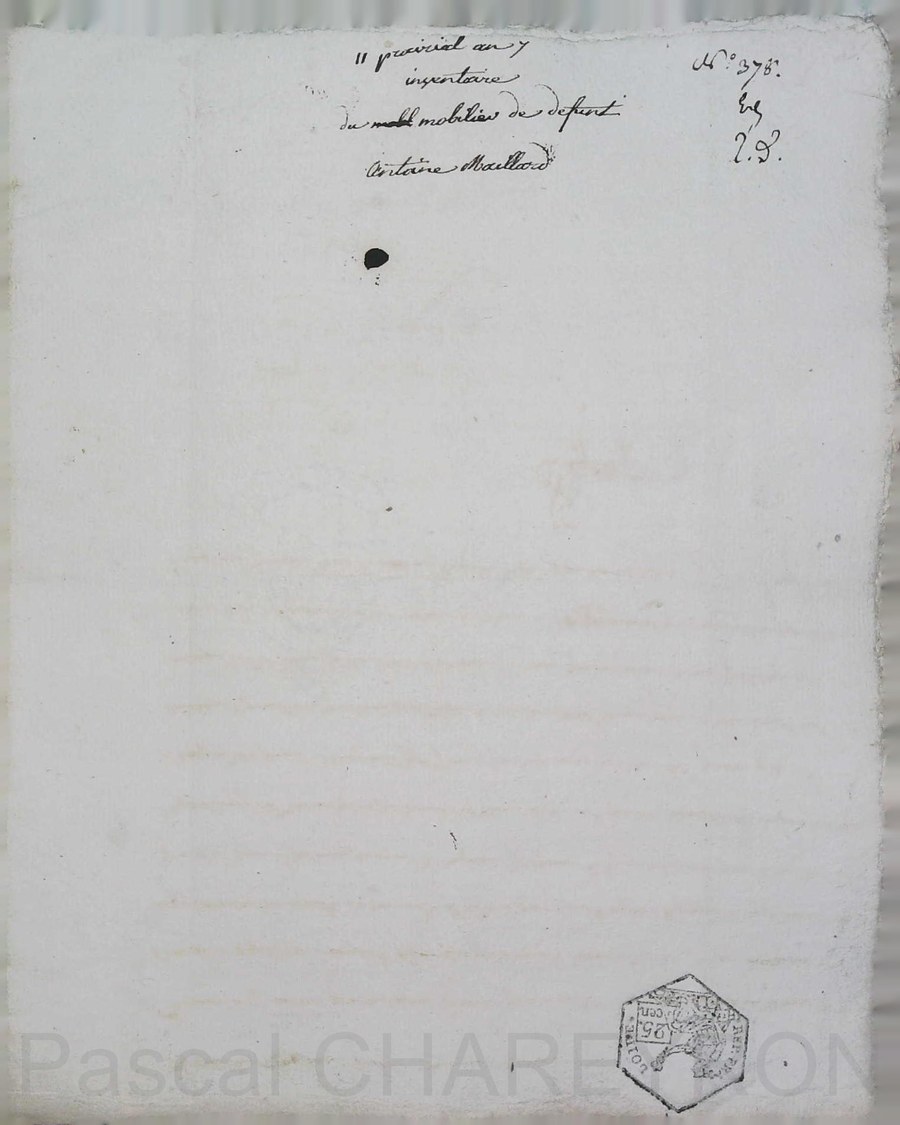 11 prairial an 7
inventaire
du mobilier de defunt
Antoine Maillard
N° 378.
Eg
2. d.
LOIRE
REP. FRA
25
cen
Pascal CHAREYRON